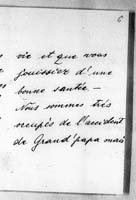 6
vie et que vous
jouissiez d'une
bonne santée —
Nous sommes très
occupés de l'accident
de Grand'papa mais